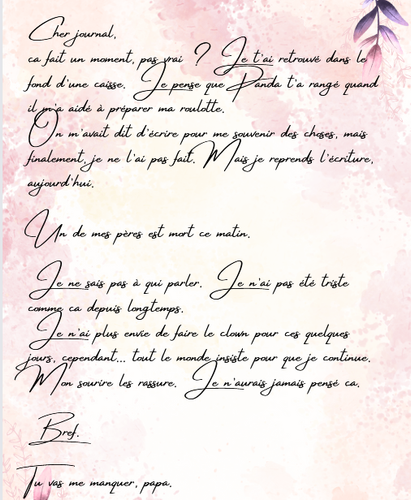 Cher journal,
ca fait un moment, pas vrai ? Je t'ai retrouvé dans le
fond d'une caisse. Je pense que Panda t'a rangé quand
il m'a aidé à préparer ma roulotte.
On m'avait dit d'écrire pour me souvenir des choses, mais
finalement, je ne l'ai pas fait. Mais je reprends l'écriture,
aujourd'hui.
Un de mes pères est mort ce matin.
Je ne sais pas à qui parler. Je n'ai pas été triste
comme ca depuis longtemps.
Je n'ai plus envie de faire le clown pour ces quelques
jours, cependant... tout le monde insiste pour que je continue.
Mon sourire les rassure. Je n'aurais jamais pensé ca.
Bref.
Tu vas me manquer, papa.